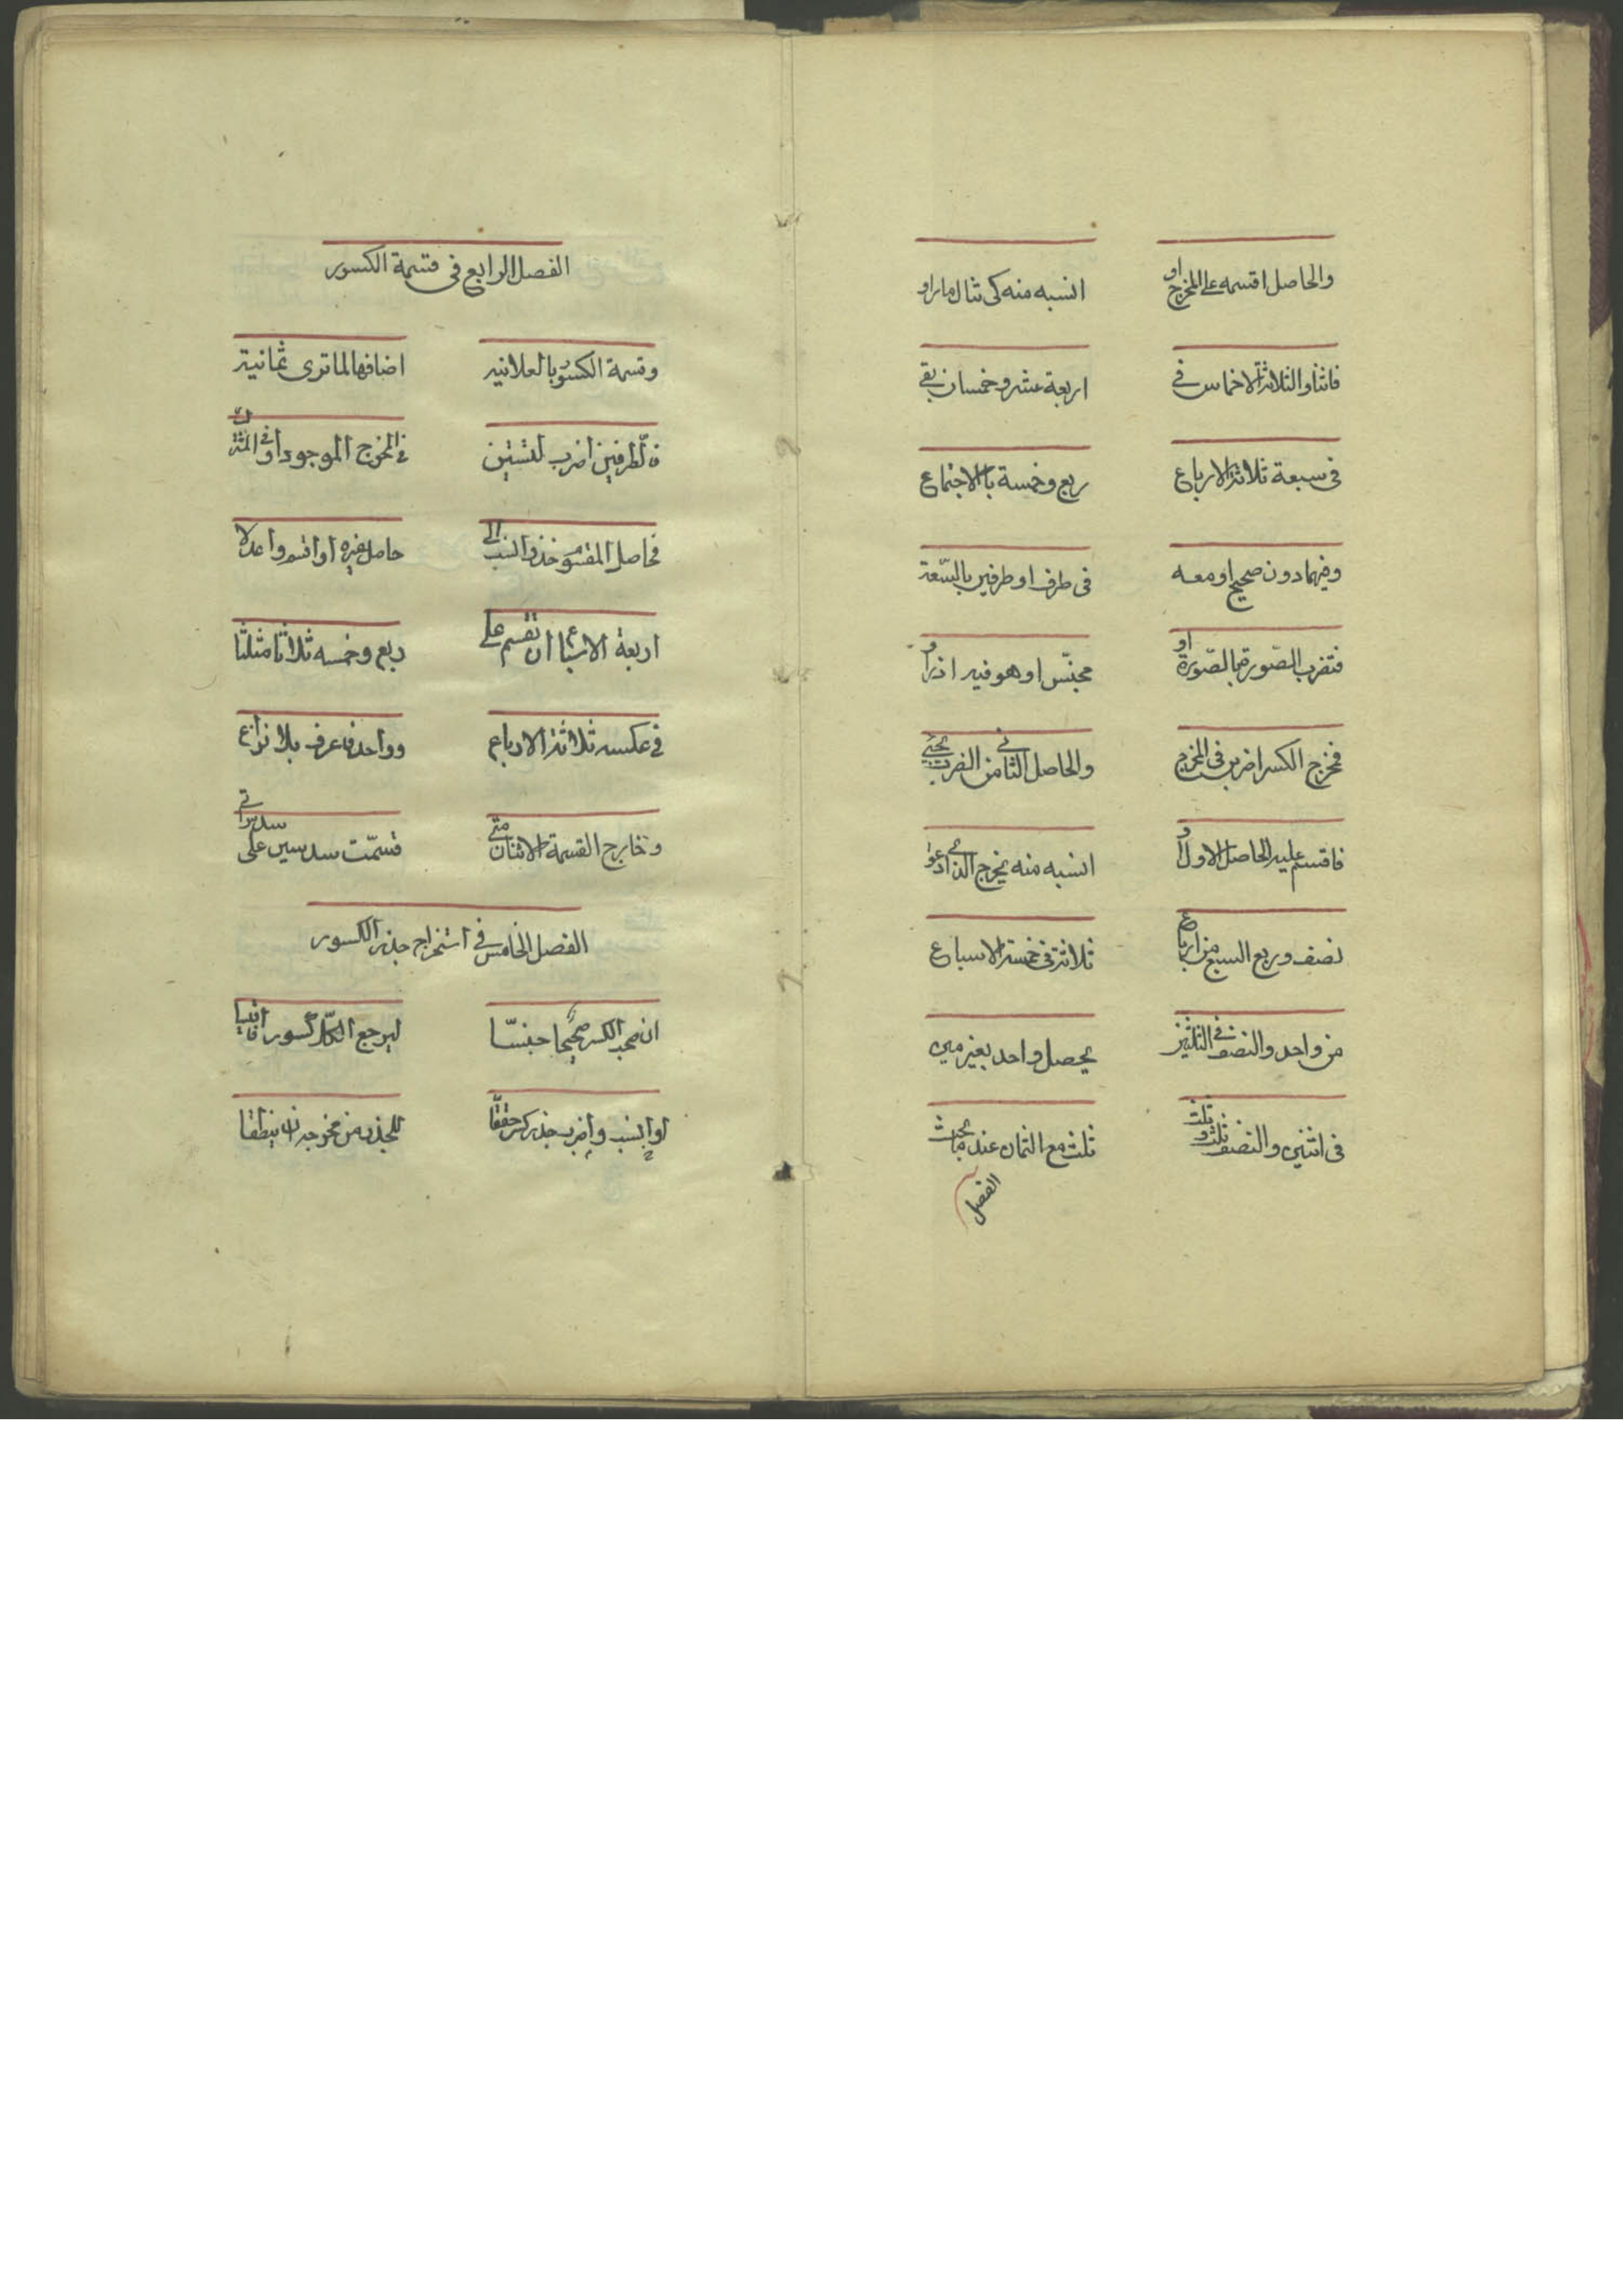 والحاصل اقسمه على المخرج او    انسبه منه كى تنال ما راو
فاثنا والثلاثة الاخماس فى    اربعة عشر وخمسان يقى
فى سبعة ثلاثة الارباع    ربع وخمسة بالاجتماع
وفيهما دون صحيح او معه    فى طرف او طرفين بالسّعة
فتضرب الصّورة بالصّورة او    مجنّس او هو فيه اذ راو
فمخرج الكسر اضربن فى المخرج    والحاصل الثانى من الضرب يجى
فاقسم عليه الحاصل الاول او    انسبه منه يخرج الذى ادعوا
نصف وربع السبع من ارباع    ثلاثة فى خمسة الاسباع
من واحد والنصف فى الثلثين    يحصل واحد بغير مين
فى اثنين والنصف ثلث وثلث    ثلث مع الثمان عند
الفصل
الفصل الرابع فى قسمة الكسور
وقسمة الكسور بالعلانيه    اضافها لما ترى ثمانية
فالطرفين اضرب لتستبن    فى المخرج الموجود او فى
فحاصل المقسوم خذ وانسب الى    حاصل غيره او اقسم واعدلا
اربعة الاسباع ان تقسم على    ربع وخمسه ثلاثا مثلثا
فى عكسه ثلاثة الارباع    وواحد فاعرف بلا نزاع
وخارج القسمة الاثنان متى    قسّمت سدسين على سدس اتى
الفصل الخامس فى استخراج جذر الكسور
ان صحب الكسر صحيحا جنسّا    ليرجع الكلّ كسورا
او انسب واضرب جذر كسر حققّا    للجذر من مخرجه ان ينطقا